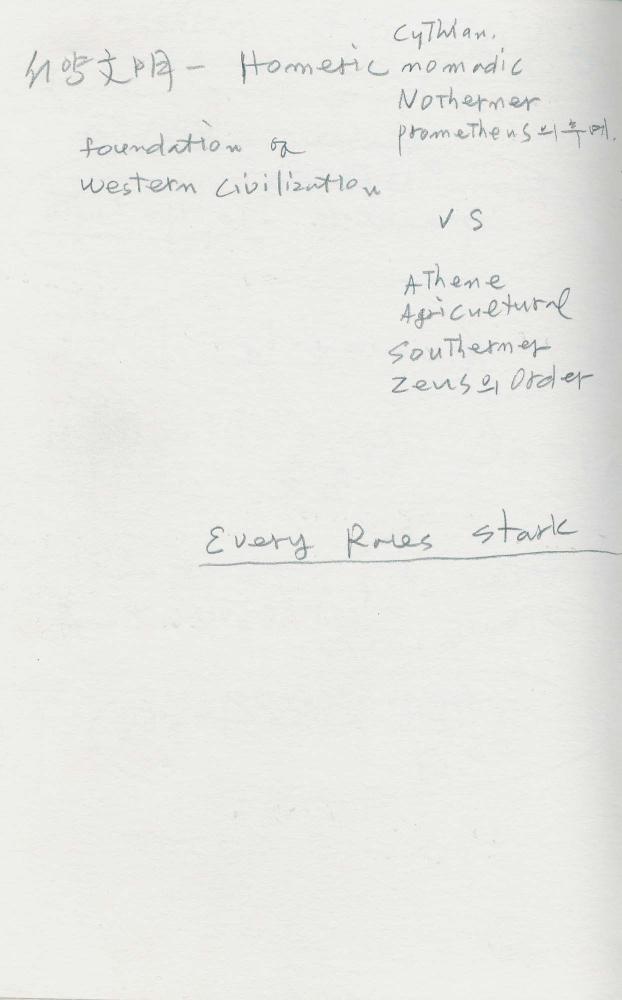 서양文明 - Homeric
foundation of
Western Civilization
Cythian.
nomadic
Notherner
prometheus의 후예.
VS
AThene
Agricultural
Southerner
Zeus의 Order
Every stark